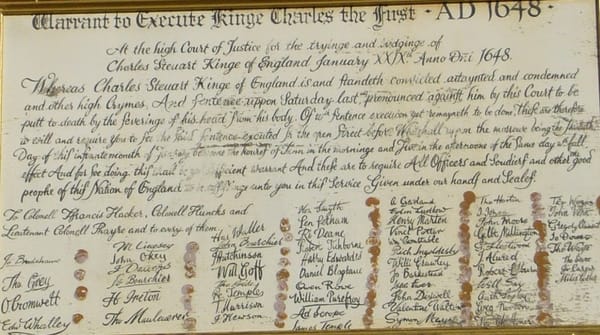 Warrant to Execute Kinge Charles the First · AD 1648 ·
At the high Court of Justice for the tryinge and iudginge of
Charles Steuart Kinge of England January XXIXth Anno Dni 1648.
Whereas Charles Steuart Kinge of England is and standeth convicted attaynted and condemned
and other high Crymes, And sentence uppon Saturday last pronounced against him by this Court to be
putt to death by the severinge of his head from his body. Of wch sentence execucon yet remayneth to be done, These are therefore
to will and require you to see the said sentence executed In the open Street before Whitehall upon the morrowe being the Thirtieth
Day of this instante moneth of the houres of Tenn in the morninge and Five in the afternoone of the same day wth full
effect And for soe doing this shall be sufficient warrant And these are to require All Officers and Souldiers and other good
people of this Nation of England to be assistinge unto you in this Service Given under our hands and Seales.
To Colonell Ffrancis Hacker, Colonell Huncks and
Lieutenant Colonell Phayre and to every of them.
Jo Bradshawe
Tho Grey
O Cromwell
Edw Whalley
M. Livesey
John Okey
J Danvers
Jo Bourchier
H Ireton
Tho Mauleverer
Har Waller
John Bourchier
Hutchinson
Will Goff
Tho Pride
P. Temples
T. Harrison
J Hewson
Hen Smyth
Per Pelham
Ri Deane
Robert Tichborne
Daniel Blagrave
Owen Rowe
William Purefroy
Ad Scrope
James Temple
A Garland
Henry Marten
Vinct Potter
Wm Constable
Rich Ingoldesby
Will Cawley
Jo Barkestead
John Dixwell
Valentine Wauton
Symon Mayne
Tho Horton
John Moore
Gilbt Millington
Robert Lilburn
Will Say
Gregory Clement
Tho Wogan